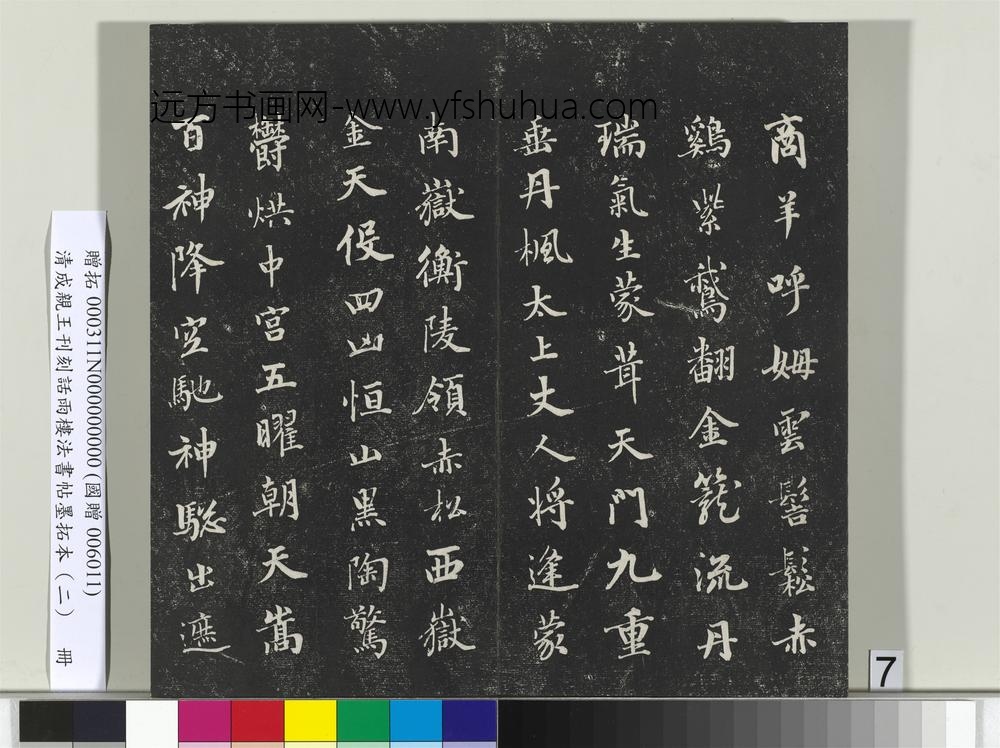 商羊呼姆雲髻鬆赤
鷄紫鸑翻金籠流丹
瑞氣生蒙茸天門九重
垂丹楓太上丈人将逢蒙
南嶽衡陵領赤松西嶽
金天促四凶恒山黑陶驚
欝烘中宫五曜朝天嵩
百神降空馳神駿出遮
远方书画网-www.yfshuhua.com
贈拓 000311N000000000(國贈 006011)
清成親王刊刻話雨樓法書帖墨拓本(二) 冊
7